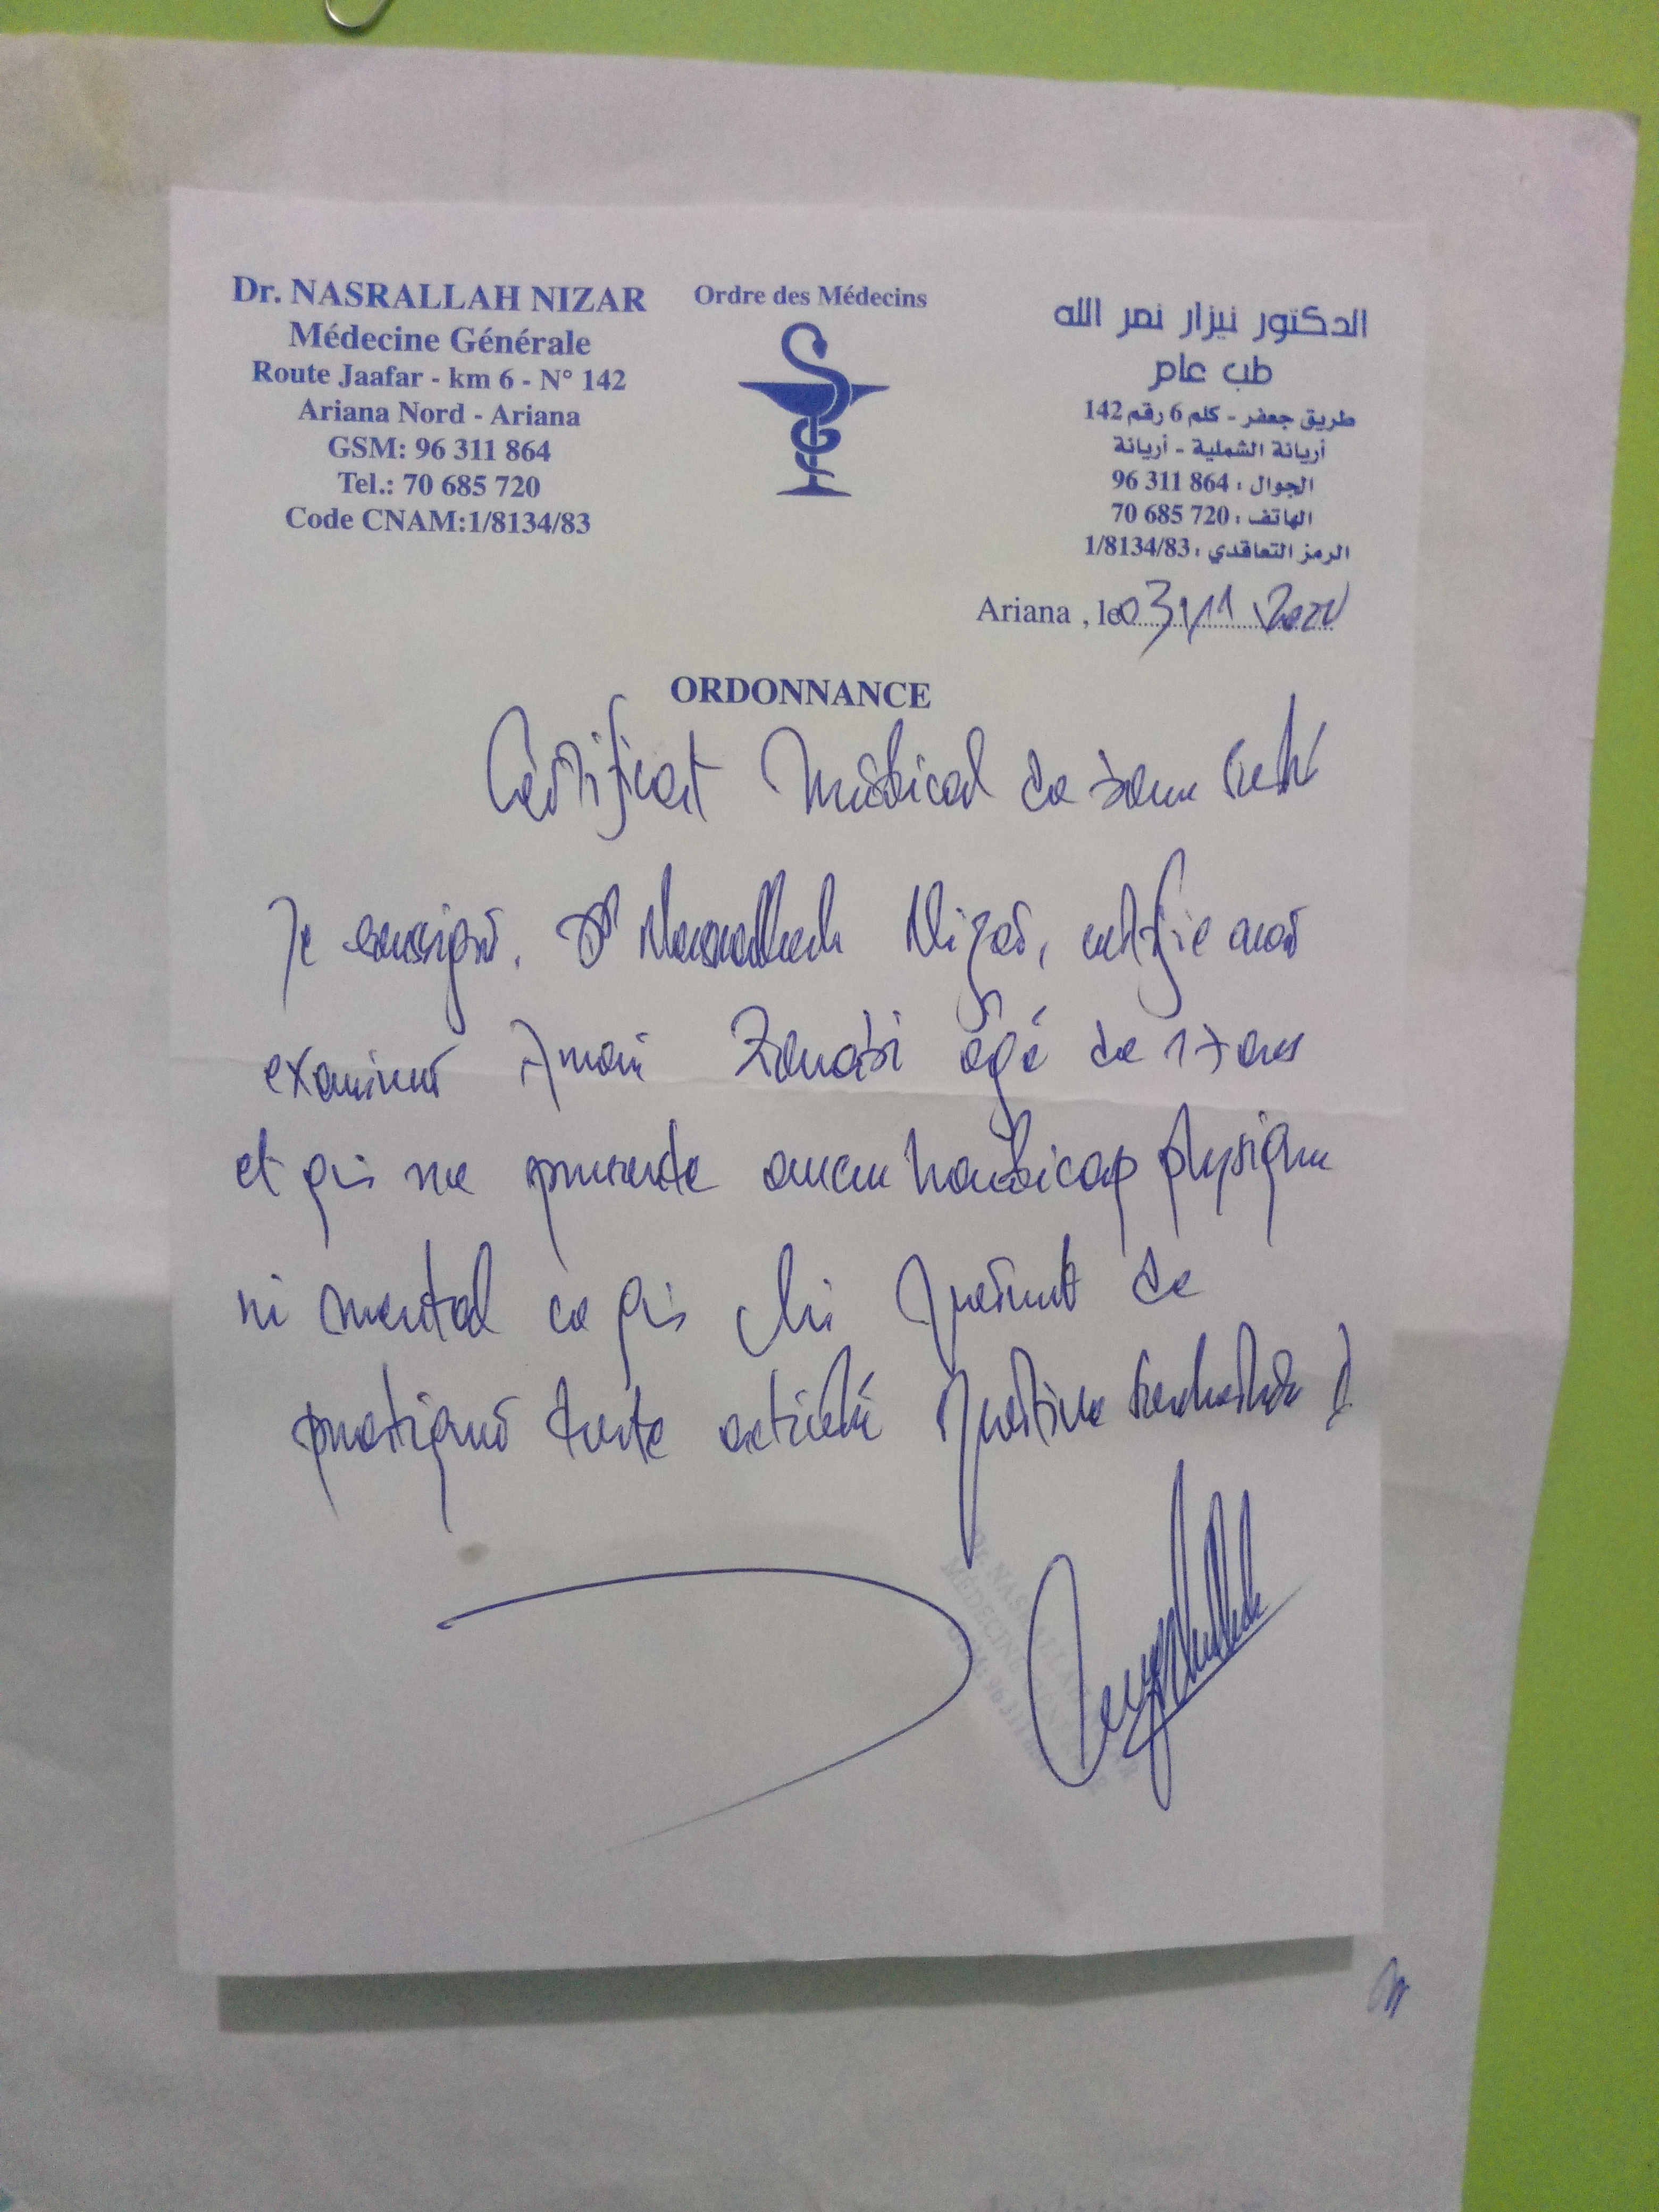 Dr. NASRALLAH NIZAR
Médecine Générale
Route Jaafar - km 6 - N° 142
Ariana Nord - Ariana
GSM: 96 311 864
Tel.: 70 685 720
Code CNAM:1/8134/83
Ordre des Médecins
الدكتور نيزار نصر الله
طب عام
طريق جعفر - كلم 6 رقم 142
أريانة الشملية - أريانة
الجوال : 96 311 864
الهاتف : 70 685 720
الرمز التعاقدي : 1/8134/83
Ariana , le 03/11
ORDONNANCE
Certificat Médical de
Je soussigné, Dr Nasrallah Nizar, certifie avoir
examiner Amani âgé de 17 ans
et qui ne présente aucun handicap physique
ni mental ce qui lui permet de
pratiquer toute activité
Dr NASRALLAH
MEDECINE GENERALE